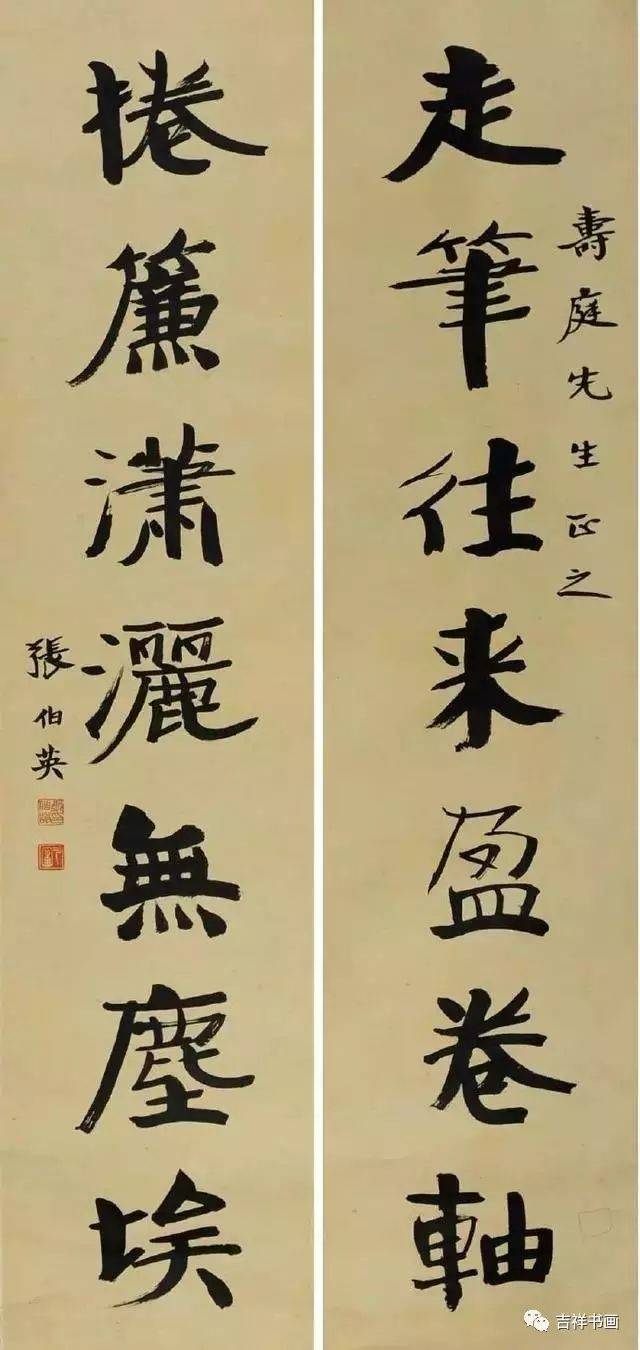 壽庭先生正之
走筆往来盈卷軸
捲簾瀟灑無塵埃
張伯英
吉祥书画